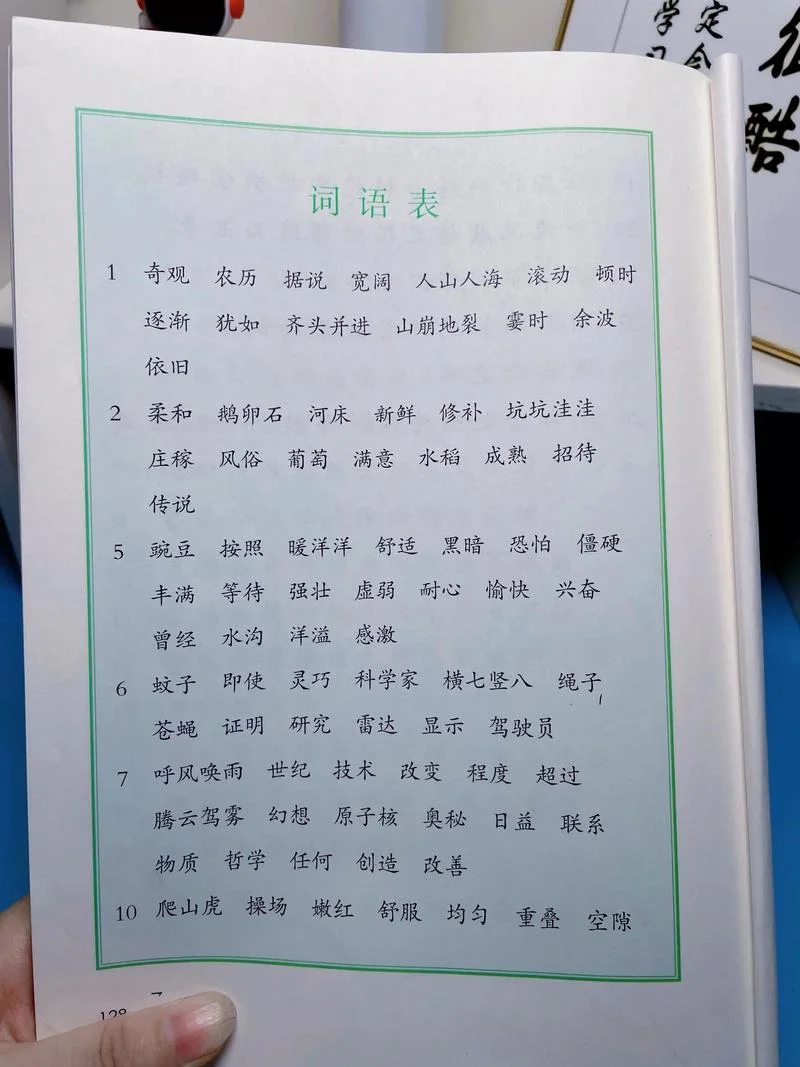 学 定
酷
词语表
1 奇观 农历 据说 宽阔 人山人海 滚动 顿时
逐渐 犹如 齐头并进 山崩地裂 霎时 余波
依旧
2 柔和 鹅卵石 河床 新鲜 修补 坑坑洼洼
庄稼 风俗 葡萄 满意 水稻 成熟 招待
传说
5 豌豆 按照 暖洋洋 舒适 黑暗 恐怕 僵硬
丰满 等待 强壮 虚弱 耐心 愉快 兴奋
曾经 水沟 洋溢 感激
6 蚊子 即使 灵巧 科学家 横七竖八 绳子
苍蝇 证明 研究 雷达 显示 驾驶员
7 呼风唤雨 世纪 技术 改变 程度 超过
腾云驾雾 幻想 原子核 奥秘 日益 联系
物质 哲学 任何 创造 改善
10 爬山虎 操场 嫩红 舒服 均匀 重叠 空隙